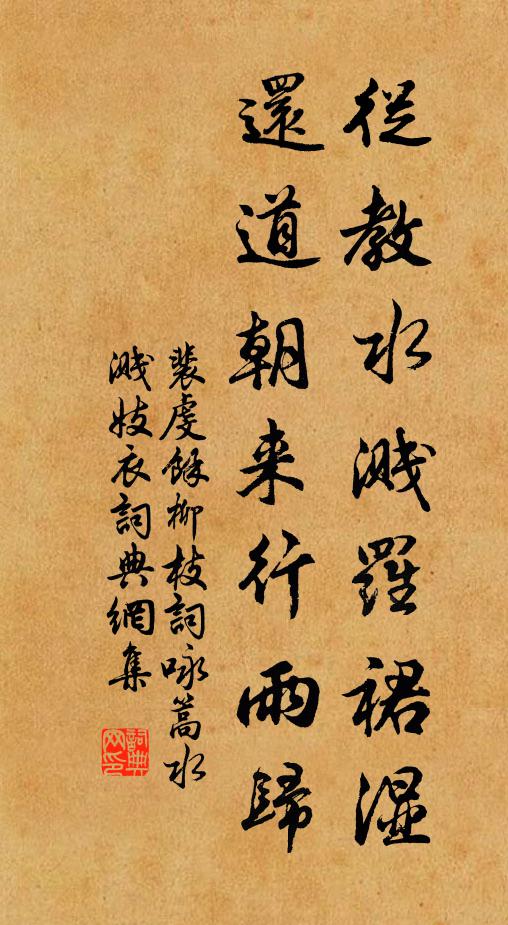 從教水濺羅裙湿
還道朝来行雨歸
裴虔餘柳枝詞咏篙水
濺妓衣詞典網集
詞典网印